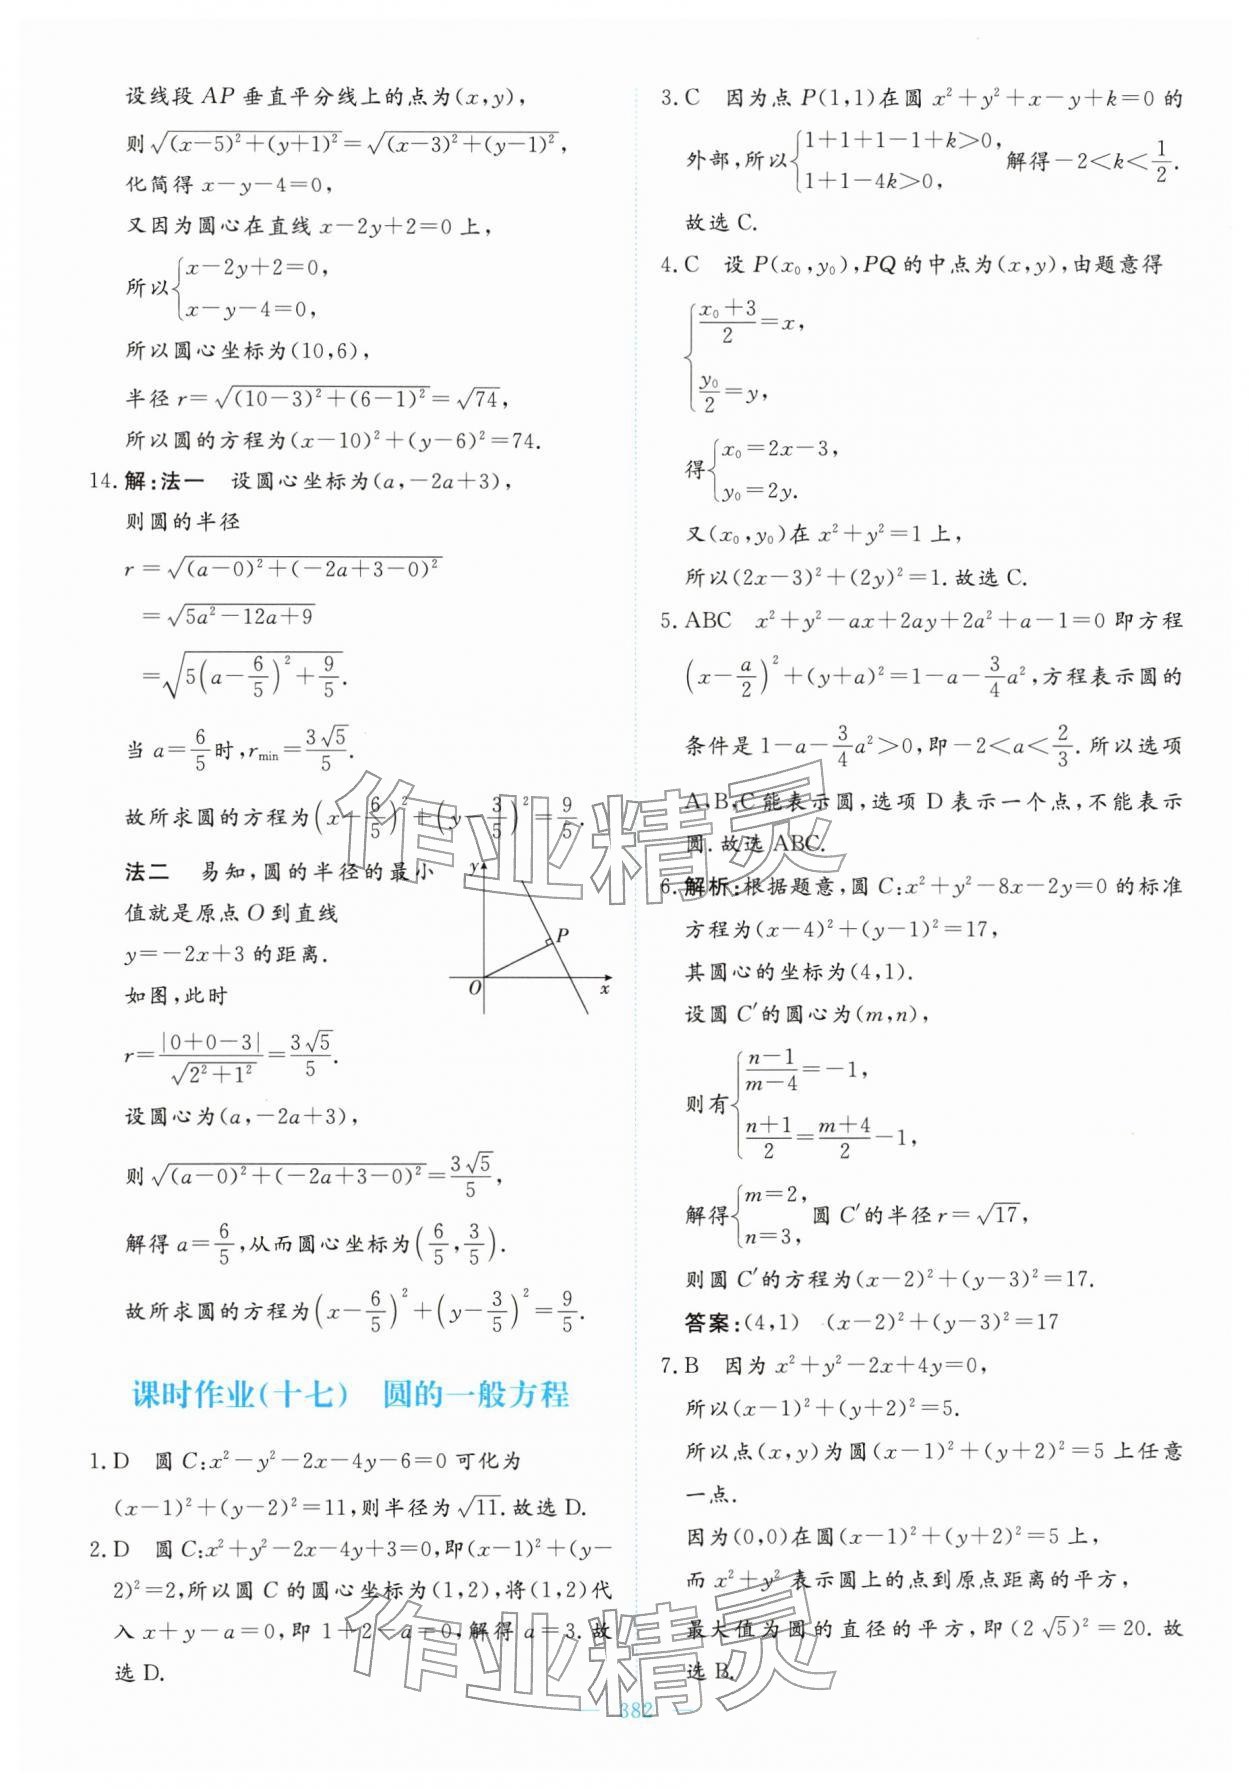 设线段 AP 垂直平分线上的点为(x,y),
则√((x-5)²+(y+1)²)=√((x-3)²+(y-1)²),
化简得 x-y-4=0,
又因为圆心在直线 x-2y+2=0 上,
所以{x-2y+2=0, x-y-4=0,
所以圆心坐标为(10,6),
半径 r=√((10-3)²+(6-1)²)=√74,
所以圆的方程为(x-10)²+(y-6)²=74.
14.解:法一 设圆心坐标为(a,-2a+3),
则圆的半径
r=√((a-0)²+(-2a+3-0)²)
=√(5a²-12a+9)
=√(5(a-6/5)²+9/5).
当 a=6/5时,r_min=3√5/5.
故所求圆的方程为(x-6/5)²+(y-3/5)²=9/5.
法二 易知,圆的半径的最小
值就是原点 O 到直线
y=-2x+3 的距离.
如图,此时
r=|0+0-3|/√(2²+1²)=3√5/5.
y
P
O
x
设圆心为(a,-2a+3),
则√((a-0)²+(-2a+3-0)²)=3√5/5,
解得 a=6/5,从而圆心坐标为(6/5,3/5).
故所求圆的方程为(x-6/5)²+(y-3/5)²=9/5.
课时作业(十七) 圆的一般方程
1.D 圆 C:x²-y²-2x-4y-6=0 可化为
(x-1)²+(y-2)²=11,则半径为√11.故选 D.
2.D 圆 C:x²+y²-2x-4y+3=0,即(x-1)²+(y-
2)²=2,所以圆 C 的圆心坐标为(1,2),将(1,2)代
入 x+y-a=0,即 1+2-a=0,解得 a=3.故
选 D.
3.C 因为点 P(1,1)在圆 x²+y²+x-y+k=0 的
外部,所以{1+1+1-1+k>0, 1+1-4k>0, 解得-2<k<1/2.
故选 C.
4.C 设 P(x₀,y₀),PQ 的中点为(x,y),由题意得
{(x₀+3)/2=x,
y₀/2=y,
得{x₀=2x-3, y₀=2y.
又(x₀,y₀)在 x²+y²=1 上,
所以(2x-3)²+(2y)²=1.故选 C.
5.ABC x²+y²-ax+2ay+2a²+a-1=0 即方程
(x-a/2)²+(y+a)²=1-a-3/4a²,方程表示圆的
条件是 1-a-3/4a²>0,即-2<a<2/3.所以选项
A,B,C 能表示圆,选项 D 表示一个点,不能表示
圆.故选 ABC.
6.解析:根据题意,圆 C:x²+y²-8x-2y=0 的标准
方程为(x-4)²+(y-1)²=17,
其圆心的坐标为(4,1).
设圆 C′的圆心为(m,n),
则有{(n-1)/(m-4)=-1, (n+1)/2=(m+4)/2-1,
解得{m=2, n=3, 圆 C′的半径 r=√17,
则圆 C′的方程为(x-2)²+(y-3)²=17.
答案:(4,1) (x-2)²+(y-3)²=17
7.B 因为 x²+y²-2x+4y=0,
所以(x-1)²+(y+2)²=5.
所以点(x,y)为圆(x-1)²+(y+2)²=5 上任意
一点.
因为(0,0)在圆(x-1)²+(y+2)²=5 上,
而 x²+y² 表示圆上的点到原点距离的平方,
最大值为圆的直径的平方,即(2√5)²=20.故
选 B.
382
作业精灵
作业精灵